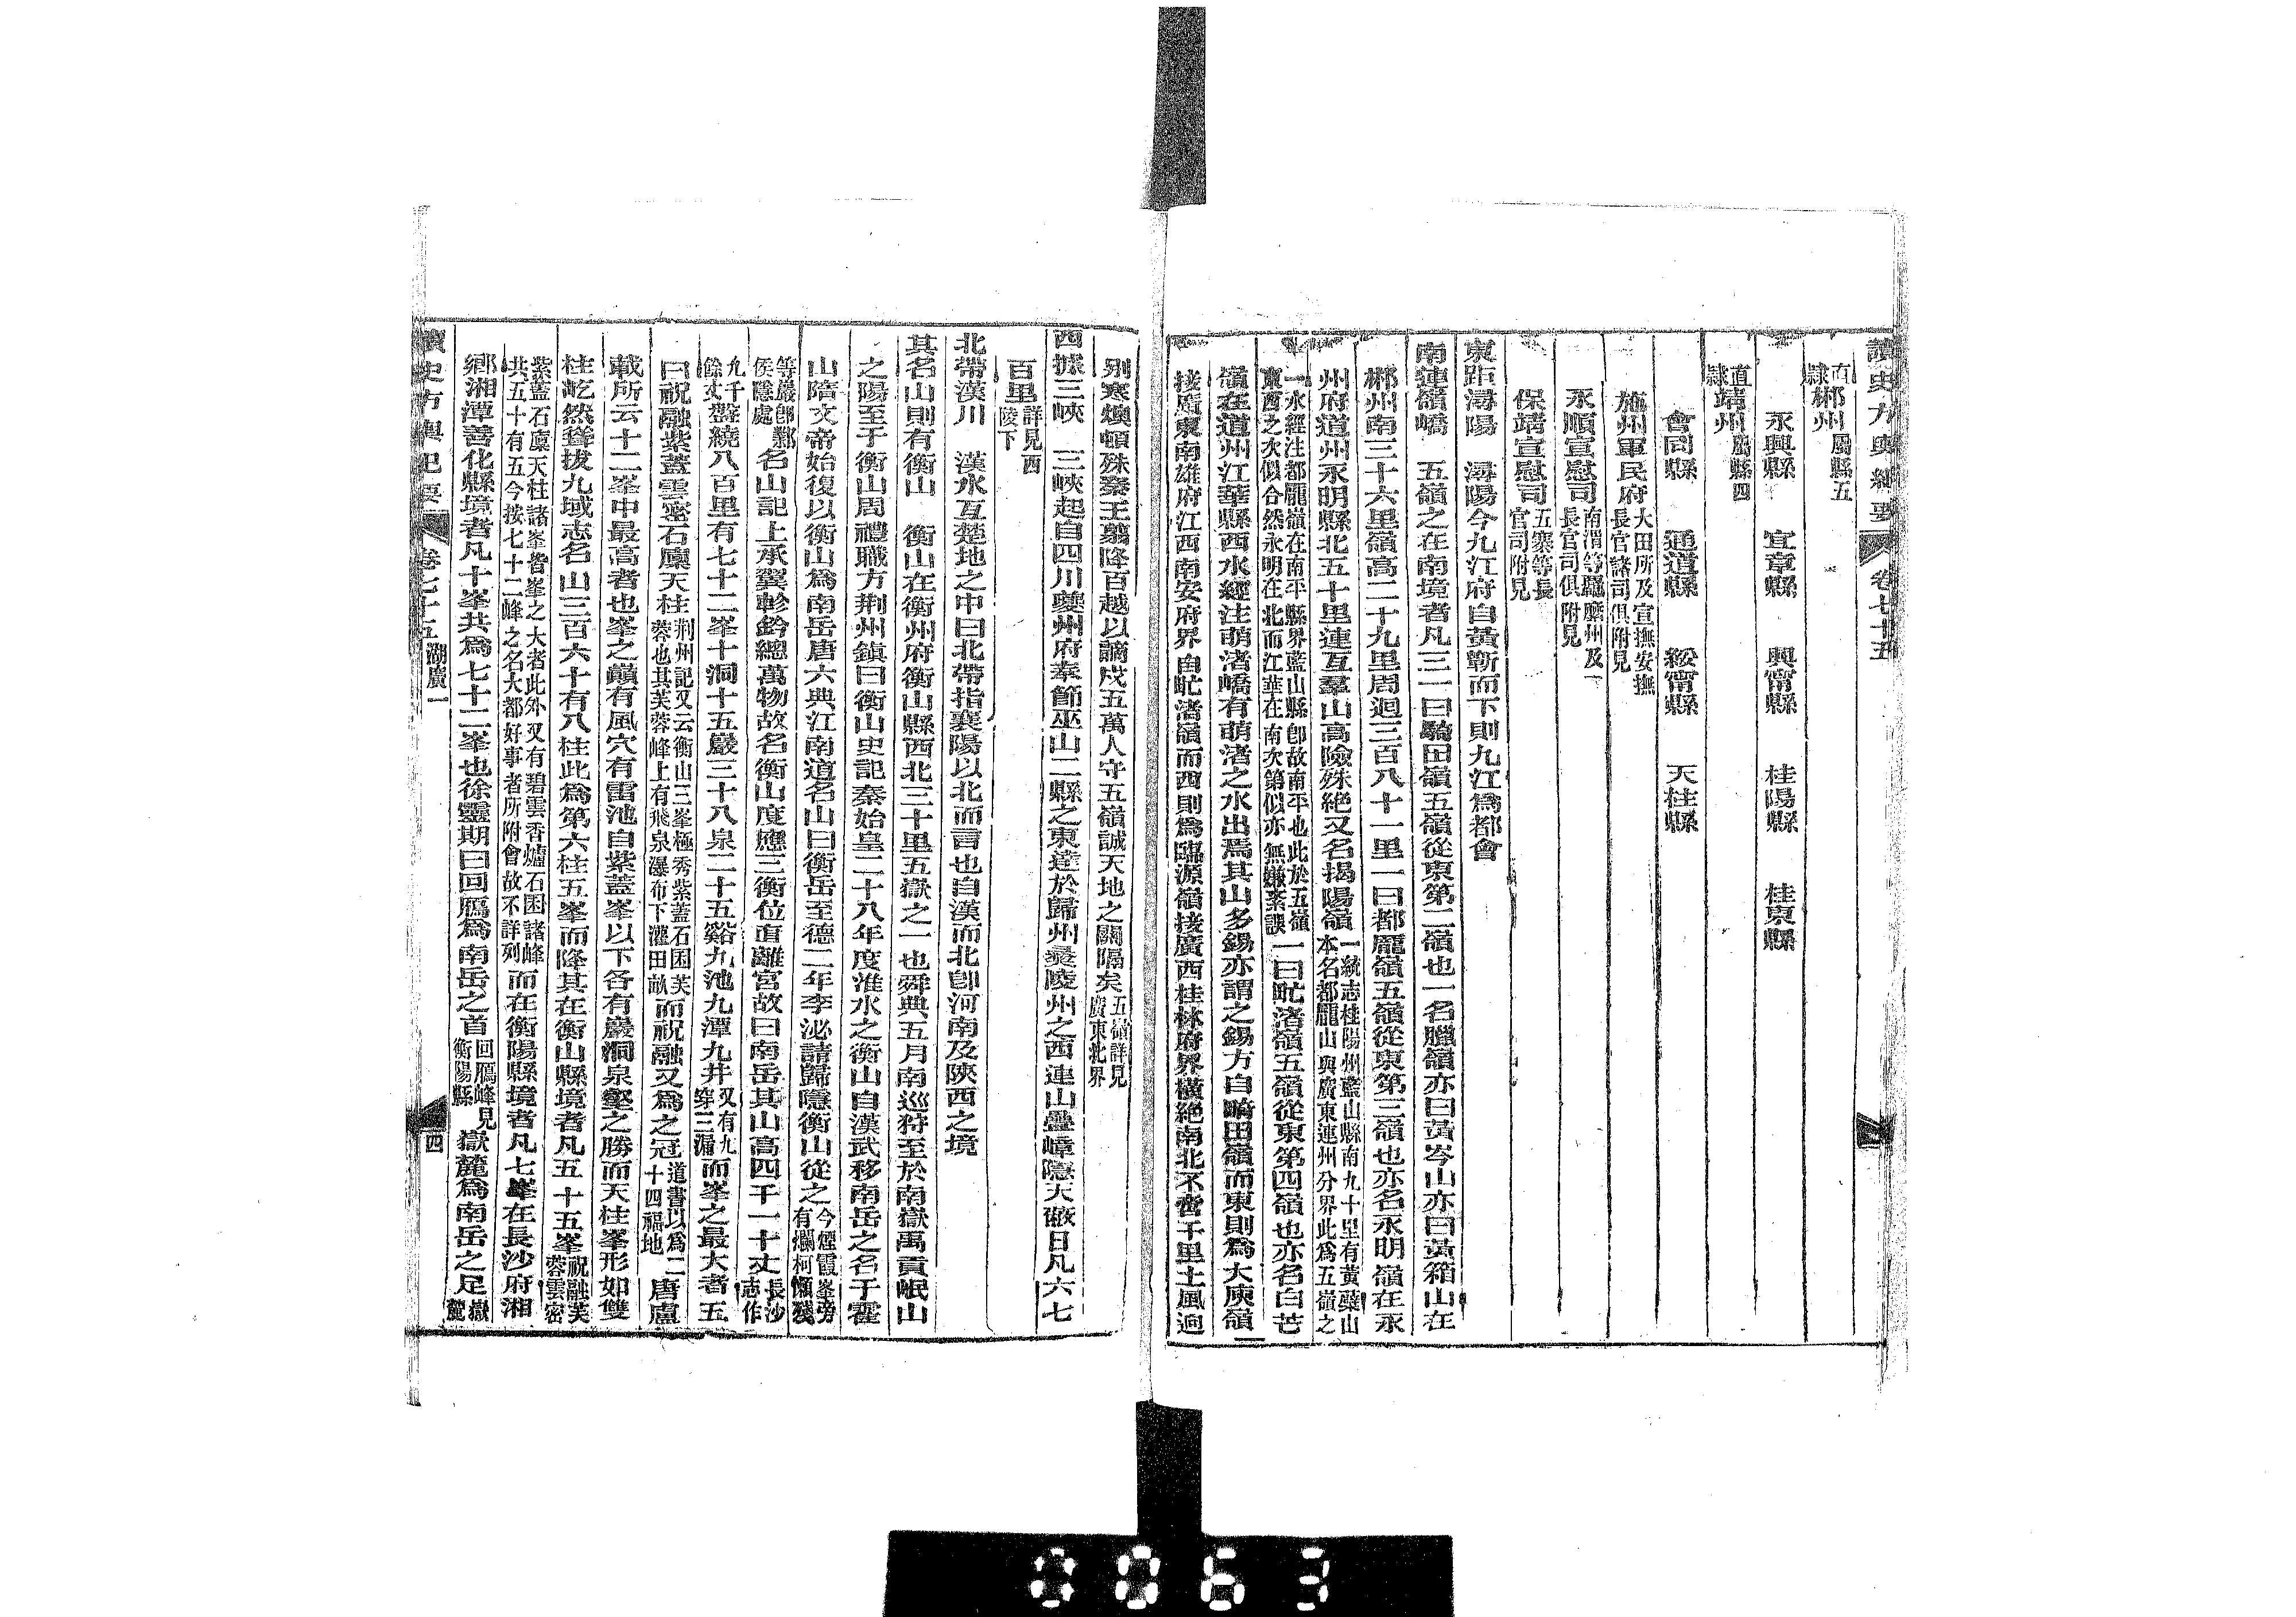 讀史方輿紀要 卷七十五
直隸郴州屬縣五
永興縣 宜章縣 興甯縣 桂陽縣 桂東縣
直隸靖州屬縣四
會同縣 通道縣 綏甯縣 天柱縣
施州軍民府大田所及宣撫安撫長官諸司俱附見
永順宣慰司南渭等羈縻州及長官司俱附見
保靖宣慰司五寨等長官司附見
東距潯陽 潯陽今九江府自黃蘄而下則九江爲都會
南連嶺嶠 五嶺之在南境者凡三一曰騎田嶺五嶺從東第二嶺也一名臘嶺亦曰黃岑山亦曰黃箱山在
郴州南三十六里嶺高二十九里周迴三百八十一里一曰都龐嶺五嶺從東第三嶺也亦名永明嶺在永
州府道州永明縣北五十里連互羣山高險殊絕又名揭陽嶺一統志桂陽州藍山縣南九十里有黃蘗山本名都龐山與廣東連州分界此爲五嶺之
一水經注都龐嶺在南平縣界藍山縣卽故南平也此於五嶺東西之次似合然永明在北而江華在南次第似亦無嫌紊誤一曰甿渚嶺五嶺從東第四嶺也亦名白芒
嶺在道州江華縣西水經注萌渚嶠有萌渚之水出焉其山多錫亦謂之錫方自騎田嶺而東則爲大庾嶺
接廣東南雄府江西南安府界自甿渚嶺而西則爲臨源嶺接廣西桂林府界橫絕南北不啻千里土風迴
別寒燠頓殊秦王翦降百越以謫戍五萬人守五嶺誠天地之關隔矣五嶺詳見廣東北界
西據三峽 三峽起自四川夔州府奉節巫山二縣之東達於歸州夷陵州之西連山疊嶂隱天蔽日凡六七
百里詳見西陵下
北帶漢川 漢水互楚地之中曰北帶指襄陽以北而言也自漢而北卽河南及陝西之境
其名山則有衡山 衡山在衡州府衡山縣西北三十里五嶽之一也舜典五月南巡狩至於南嶽禹貢岷山
之陽至于衡山周禮職方荆州鎭曰衡山史記秦始皇二十八年度淮水之衡山自漢武移南岳之名于霍
山隋文帝始復以衡山爲南岳唐六典江南道名山曰衡岳至德二年李泌請歸隱衡山從之今煙霞峯旁有瀾柯懶殘
等巖卽鄴侯隱處名山記上承翼軫鈐總萬物故名衡山度應三衡位直離宮故曰南岳其山高四千一十丈長沙志作
九千餘丈盤繞八百里有七十二峯十洞十五巖三十八泉二十五谿九池九潭九井又有九穿三漏而峯之最大者五
曰祝融紫蓋雲密石廩天柱荆州記又云衡山三峯極秀紫蓋石囷芙蓉也其芙蓉峰上有飛泉瀑布下灌田畝而祝融又爲之冠道書以爲二十四福地唐盧
載所云十二峯中最高者也峯之巔有風穴有雷池自紫蓋峯以下各有巖洞泉壑之勝而天柱峯形如雙
柱屹然聳拔九域志名山三百六十有八柱此爲第六柱五峯而降其在衡山縣境者凡五十五峯祝融芙蓉雲密
紫蓋石廩天柱諸峯皆峯之大者此外又有碧雲香爐石囷諸峰共五十有五今按七十二峰之名大都好事者所附會故不詳列而在衡陽縣境者凡七峯在長沙府湘
鄉湘潭善化縣境者凡十峯共爲七十二峯也徐靈期曰回鴈爲南岳之首回鴈峰見衡陽縣嶽麓爲南岳之足嶽麓
讀史方輿紀要 卷七十五 湖廣一 四
0063